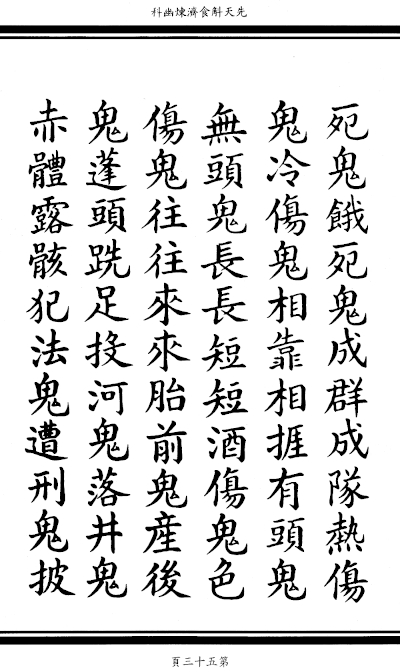 先天斛食濟煉幽科
死鬼餓死鬼成群成隊熱傷
鬼冷傷鬼相靠相捱有頭鬼
無頭鬼長長短短酒傷鬼色
傷鬼往往來來胎前鬼産後
鬼蓬頭跣足投河鬼落井鬼
赤體露骸犯法鬼遭刑鬼披
第五十三頁